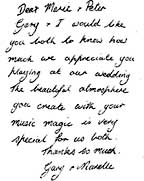 Dear Marie & Peter
Gary & I would like
you both to know how
much we appreciate you
playing at our wedding
the beautiful atmosphere
you create with your
music magic is very
special for us both.
Thanks so much.
Gary &